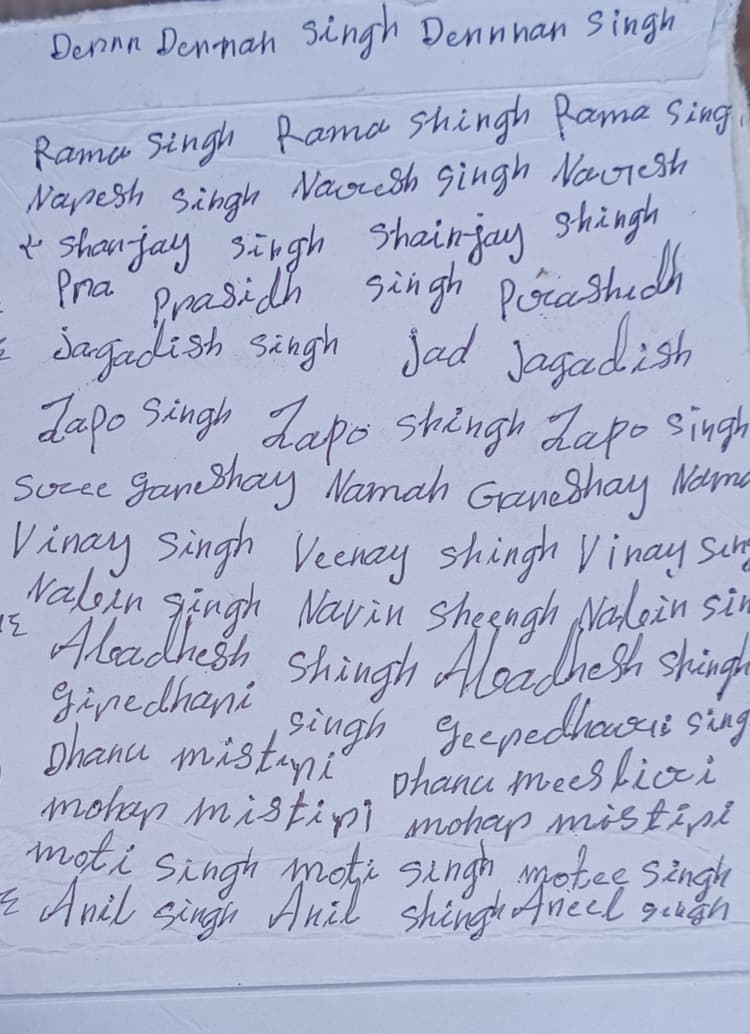 Dennn Dennah Singh Dennhan Singh
Rama Singh Rama Shingh Rama Sing
Naresh Singh Naresh Singh Navresh
Shanjay Singh Shainjay Shingh
Pra Prasidh Singh Porashidh
Jagadish Singh Jad Jagadish
Zapo Singh Zapo Shingh Zapo Singh
Soree ganeshay Namah Ganeshay Nama
Vinay Singh Veenay Shingh Vinay Sing
Navin Singh Navin Sheengh Navin Sin
Abadhesh Shingh Abadhesh Shingh
Giredhari Singh Geeredhari Sing
Dhanu mistiri Dhanu meestiri
mohar mistiri mohar mistiri
moti Singh moti Singh motee Singh
Anil Singh Anil Shingh Aneel Singh